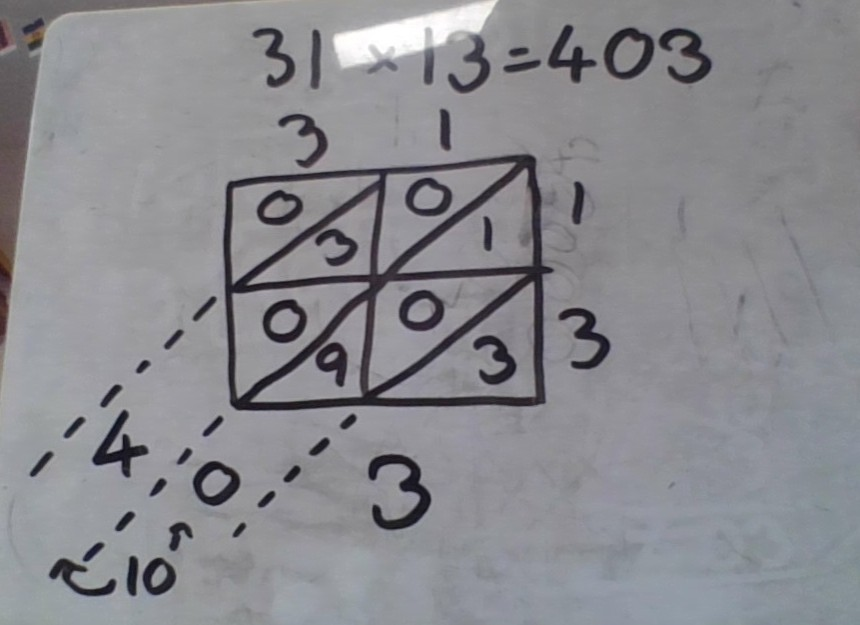 31 × 13 = 403
3 1
0 0 1
3 1
0 0 3
9 3
4 0 3
10